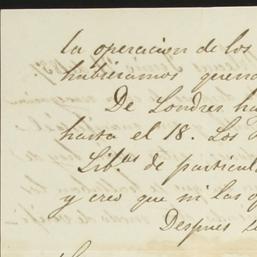 la operacion de los
hubieramos
De Londres
hasta el 18. Los
Lib.as de particul
y creo que ni las
Despues